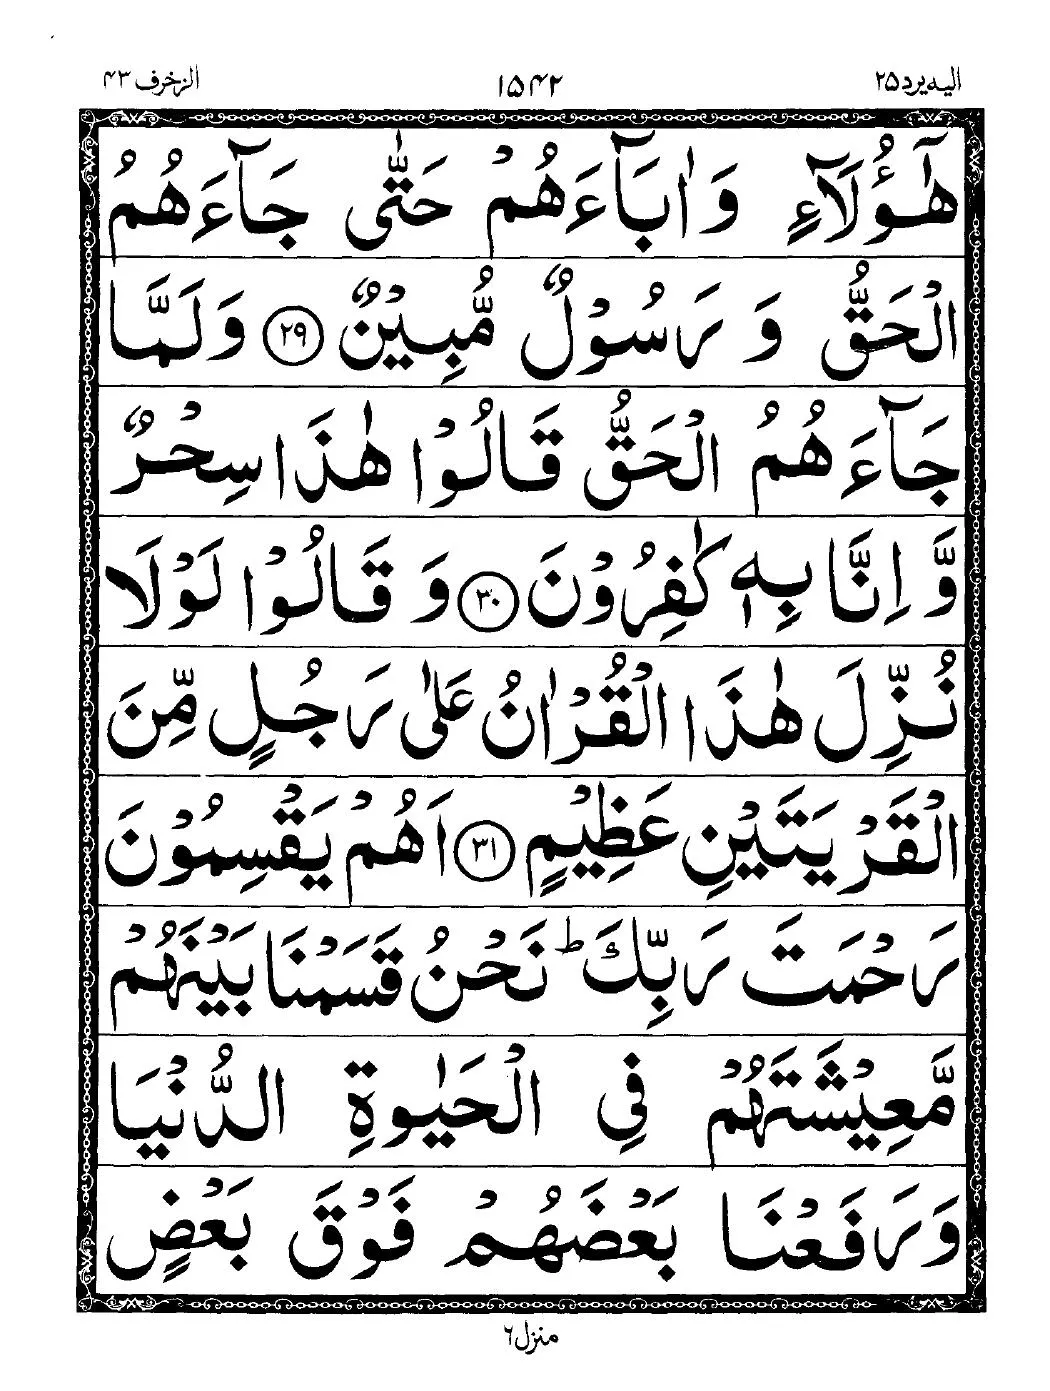 الیه یرد ۲۵
۱۵۴۲
الزخرف ۴۳
هٰۤؤُلَآءِ وَاٰبَآءَهُمْ حَتّٰی جَآءَهُمُ
الْحَقُّ وَ رَسُوْلٌ مُّبِیْنٌ ﴿۲۹﴾ وَلَمَّا
جَآءَهُمُ الْحَقُّ قَالُوْا هٰذَا سِحْرٌ
وَّ اِنَّا بِهٖ كٰفِرُوْنَ ﴿۳۰﴾ وَ قَالُوْا لَوْلَا
نُزِّلَ هٰذَا الْقُرْاٰنُ عَلٰی رَجُلٍ مِّنَ
الْقَرْیَتَیْنِ عَظِیْمٍ ﴿۳۱﴾ اَهُمْ یَقْسِمُوْنَ
رَحْمَتَ رَبِّكَ ؕ نَحْنُ قَسَمْنَا بَیْنَهُمْ
مَّعِیْشَتَهُمْ فِی الْحَیٰوةِ الدُّنْیَا
وَ رَفَعْنَا بَعْضَهُمْ فَوْقَ بَعْضٍ
منزل ۶